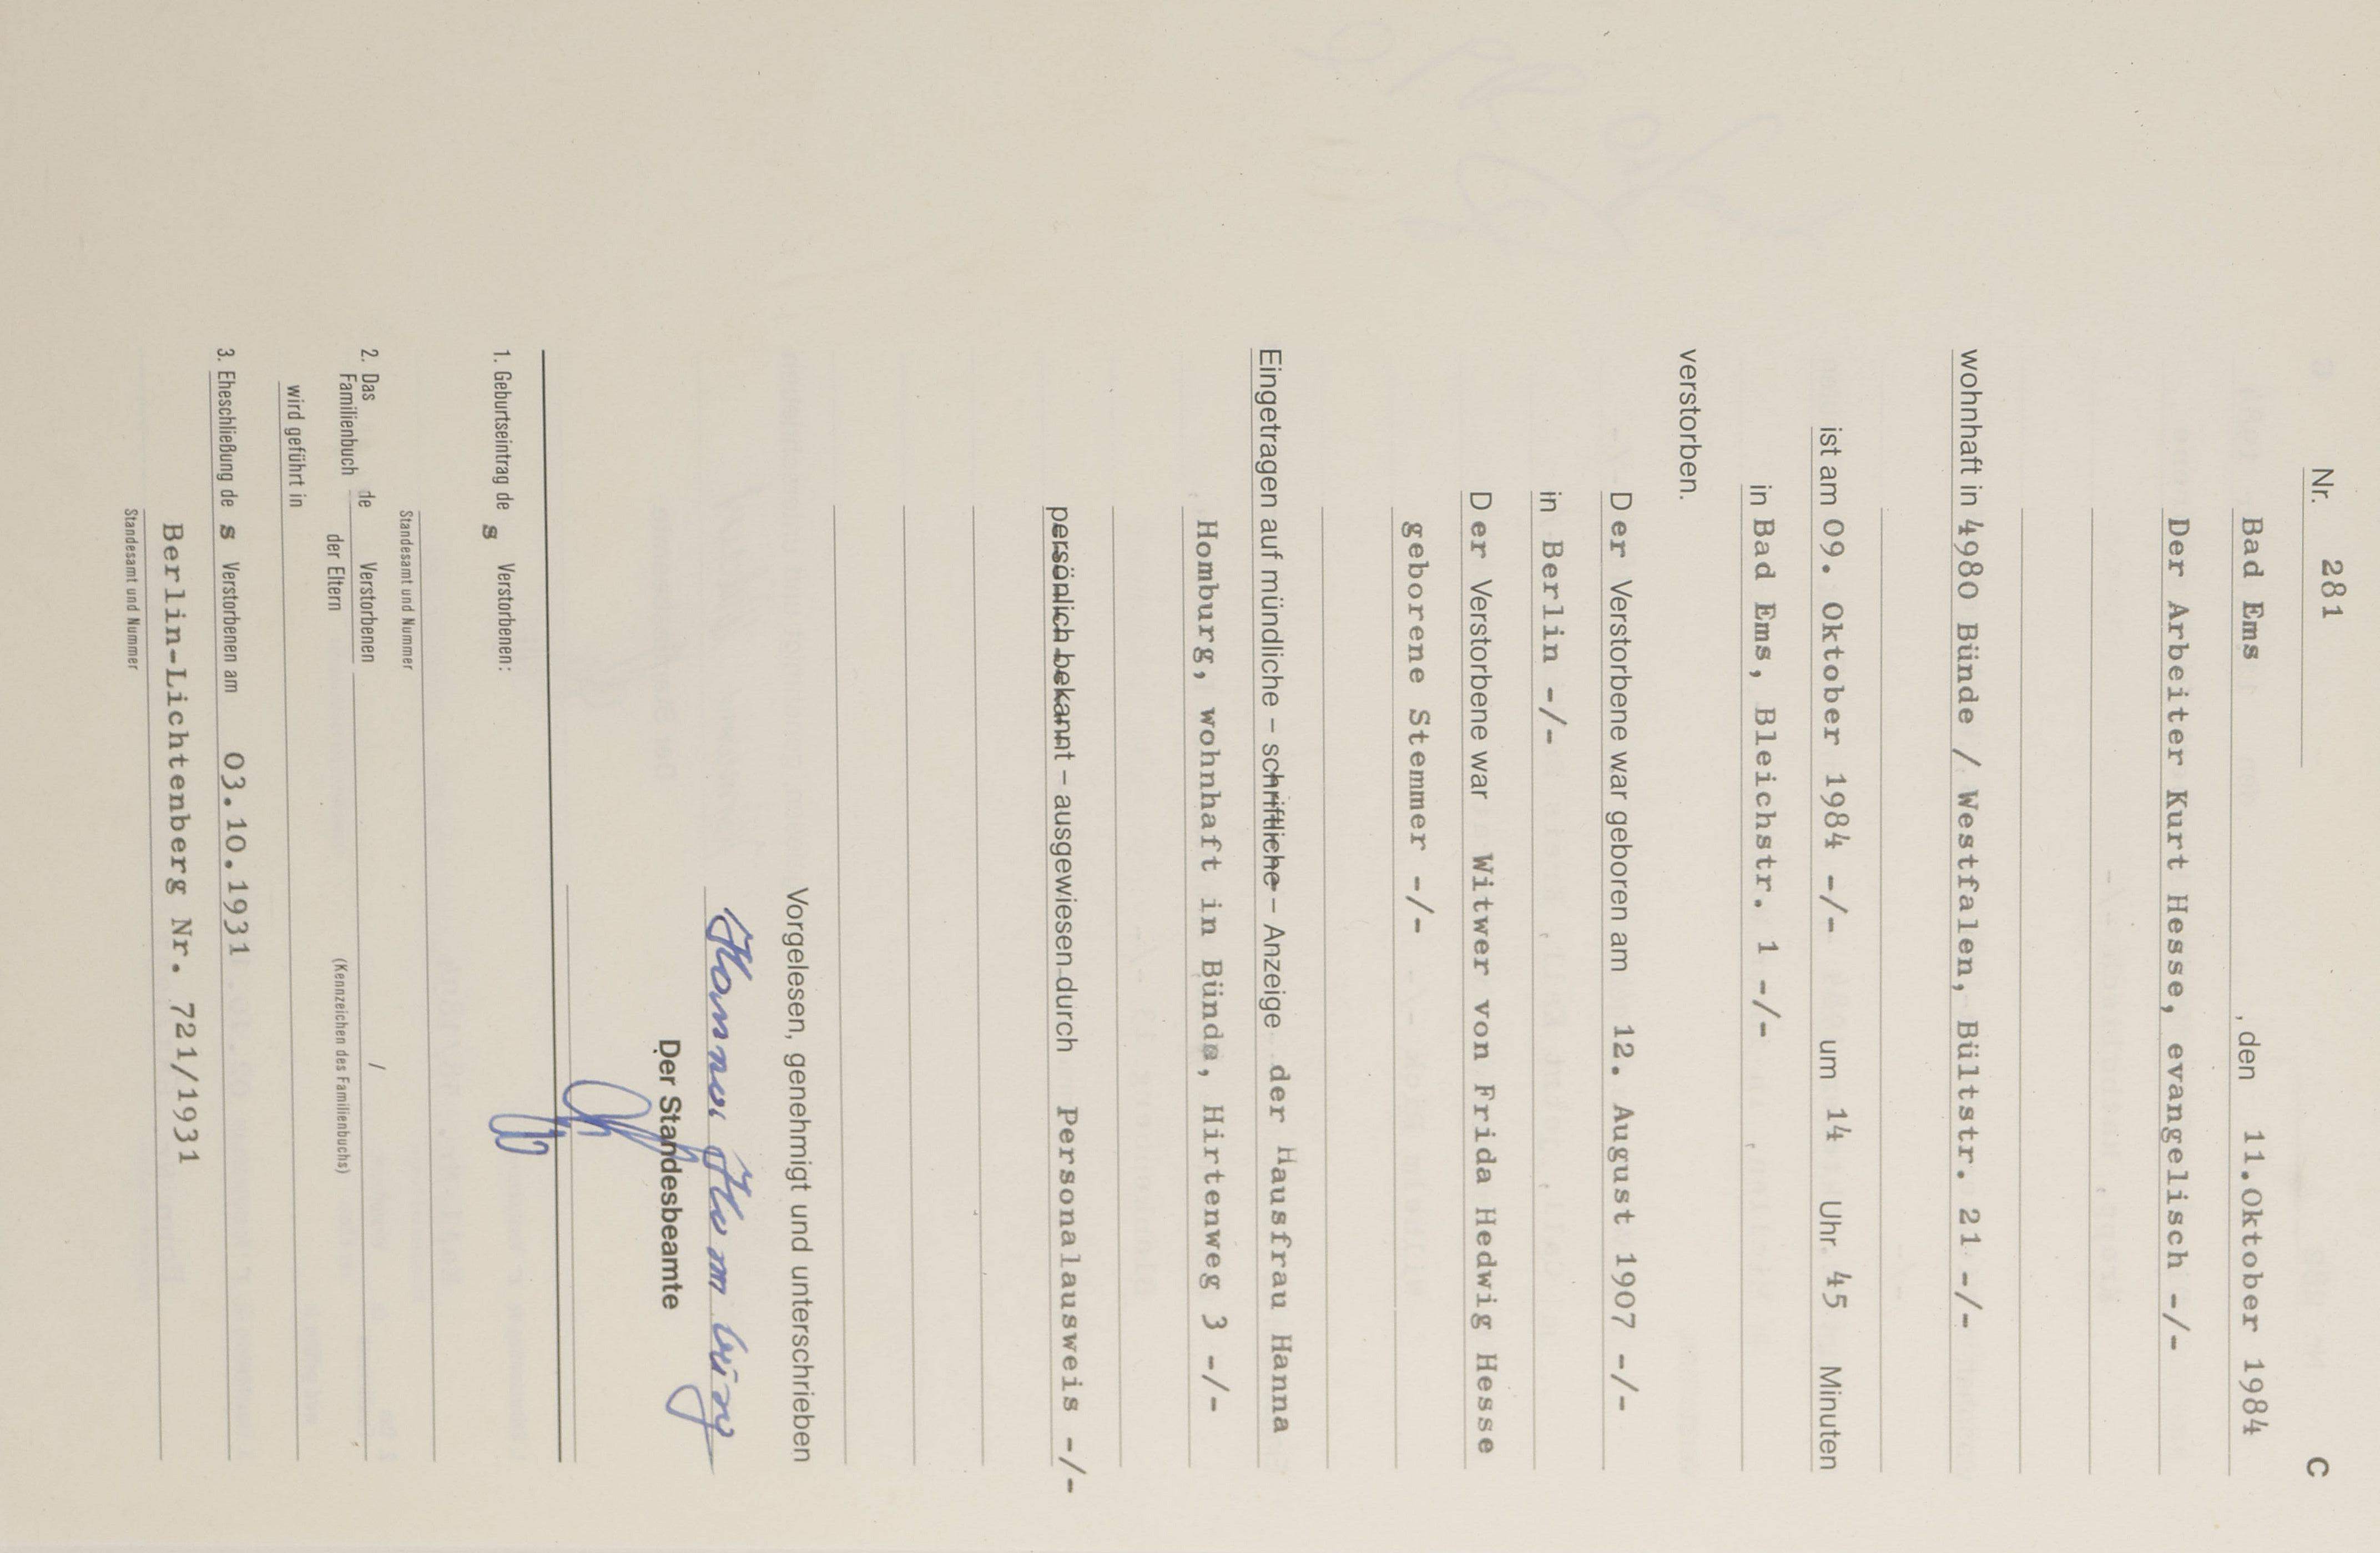 C
Nr. 281
Bad Ems, den 11.Oktober 1984
Der Arbeiter Kurt Hesse, evangelisch -/-
wohnhaft in 4980 Bünde / Westfalen, Bültstr. 21 -/-
ist am 09. Oktober 1984 -/- um 14 Uhr 45 Minuten
in Bad Ems, Bleichstr. 1 -/-
verstorben.
Der Verstorbene war geboren am 12. August 1907 -/-
in Berlin -/-
Der Verstorbene war Witwer von Frida Hedwig Hesse
geborene Stemmer -/-
Eingetragen auf mündliche – schriftliche – Anzeige der Hausfrau Hanna
Homburg, wohnhaft in Bünde, Hirtenweg 3 -/-
persönlich bekannt – ausgewiesen durch Personalausweis -/-
Vorgelesen, genehmigt und unterschrieben
Hanna Homburg
Der Standesbeamte
1. Geburtseintrag des Verstorbenen:
Standesamt und Nummer
2. Das Familienbuch de Verstorbenen /
der Eltern (Kennzeichen des Familienbuchs)
wird geführt in
3. Eheschließung des Verstorbenen am 03.10.1931
Berlin-Lichtenberg Nr. 721/1931
Standesamt und Nummer